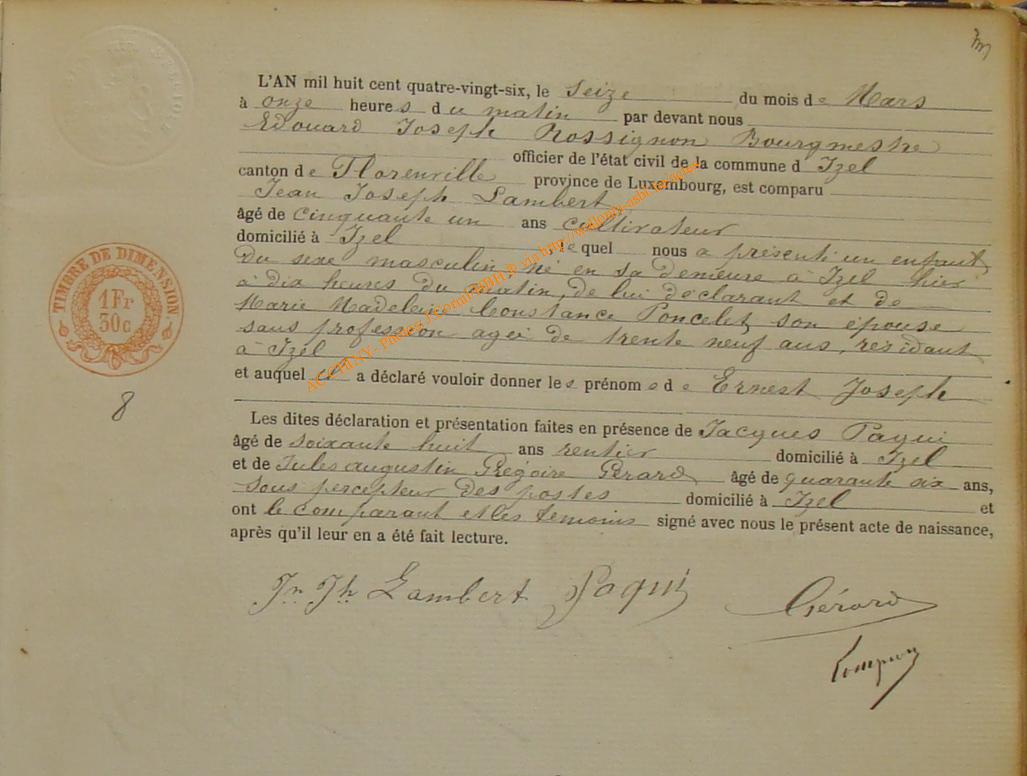 L'AN mil huit cent quatre-vingt-six, le seize du mois de Mars
à onze heures du matin par devant nous
Edouard Joseph Rossignon Bourgmestre
officier de l'état civil de la commune d Izel
canton de Florenville province de Luxembourg, est comparu
Jean Joseph Lambert
âgé de cinquante un ans cultivateur
domicilié à Izel lequel nous a présenté un enfant
du sexe masculin né en sa demeure à Izel hier
à dix heures du matin, de lui déclarant et de
Marie Madeleine Constance Poncelet son épouse
sans profession agée de trente neuf ans, residant
à Izel
et auquel il a déclaré vouloir donner les prénoms de Ernest Joseph
Les dites déclaration et présentation faites en présence de Jacques Paqui
âgé de soixante huit ans rentier domicilié à Izel
et de Jules augustin Grégoire Gérard âgé de quarante six ans,
sous percepteur des postes domicilié à Izel et
ont le comparant et les temoins signé avec nous le présent acte de naissance,
après qu'il leur en a été fait lecture.
Jn Jh Lambert Paqui Gérard
TIMBRE DE DIMENSION
1 Fr
30c
8